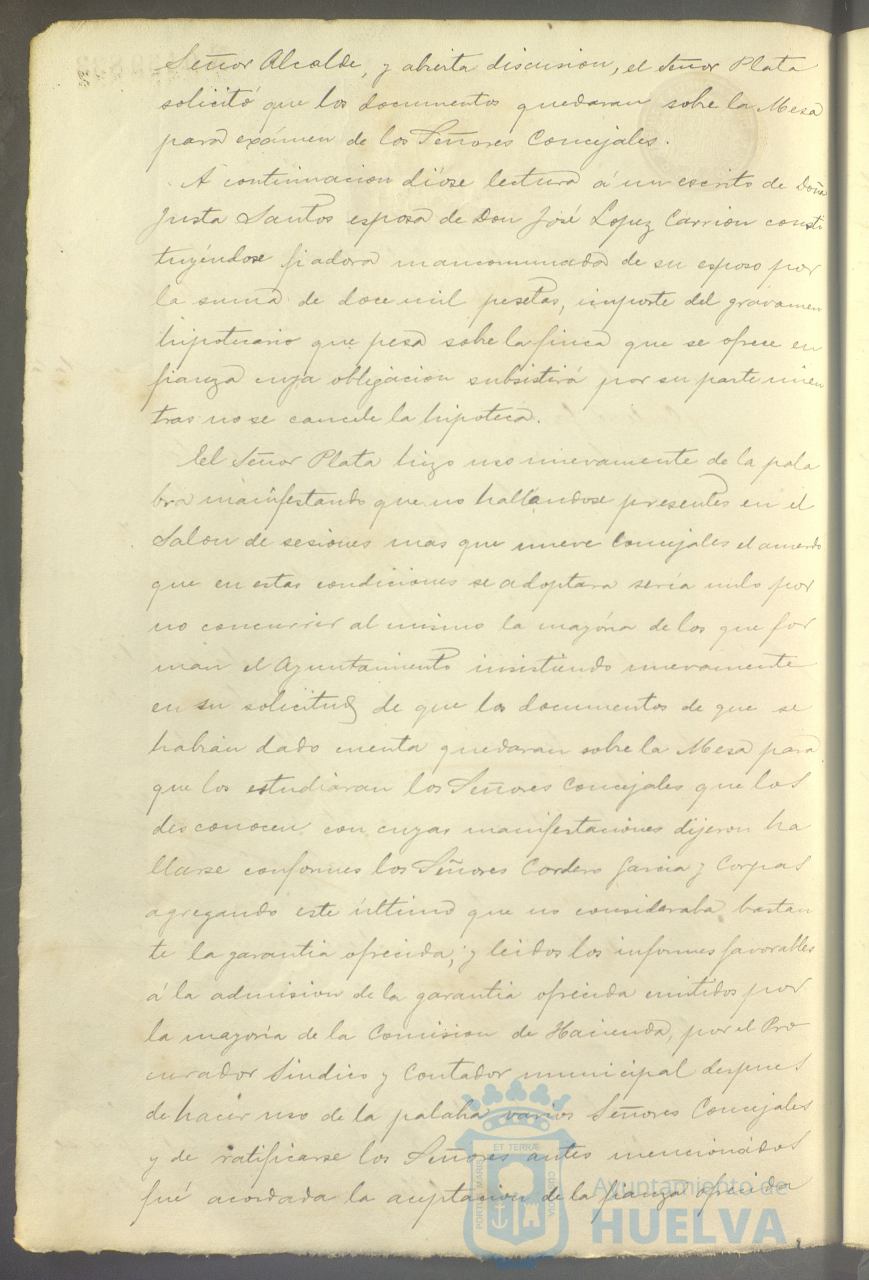 Señor Alcalde, y abierta discusion, el Señor Plata
solicitó que los documentos quedaran sobre la Mesa
para exámen de los Señores Concejales.
A continuacion dióse lectura á un escrito de Doña
Justa Santos esposa de Don José Lopez Carrion consti
tuyéndose fiadora mancomunada de su esposo por
la suma de doce mil pesetas, importe del gravamen
hipotecario que pesa sobre la finca que se ofrece en
fianza cuya obligacion subsistirá por su parte mien
tras no se cancele la hipoteca.
El Señor Plata hizo uso nuevamente de la pala
bra manifestando que no hallandose presentes en el
Salon de sesiones mas que nueve Concejales el acuerdo
que en estas condiciones se adoptara sería nulo por
no concurrir al mismo la mayória de los que for
man el Ayuntamiento insistiendo nuevamente
en su solicitud de que los documentos de que se
habian dado cuenta quedaran sobre la Mesa para
que los estudiáran los Señores Concejales que los
desconocen con cuyas manifestaciones dijeron ha
llarse conformes los Señores Cordero Garcia y Corpas
agregando este último que no consideraba bastan
te la garantia ofrecida; y leidos los informes favorables
á la admision de la garantia ofrecida emitidos por
la mayoria de la Comision de Hacienda, por el Pro
curador Sindico y Contador municipal despues
de hacer uso de la palabra varios Señores Concejales
y de ratificarse los Señores antes mencionados
fué acordada la aceptacion de la fianza ofrecida
PORTUS MARIS ET TERRÆ CUSTODIA
Ayuntamiento de
HUELVA